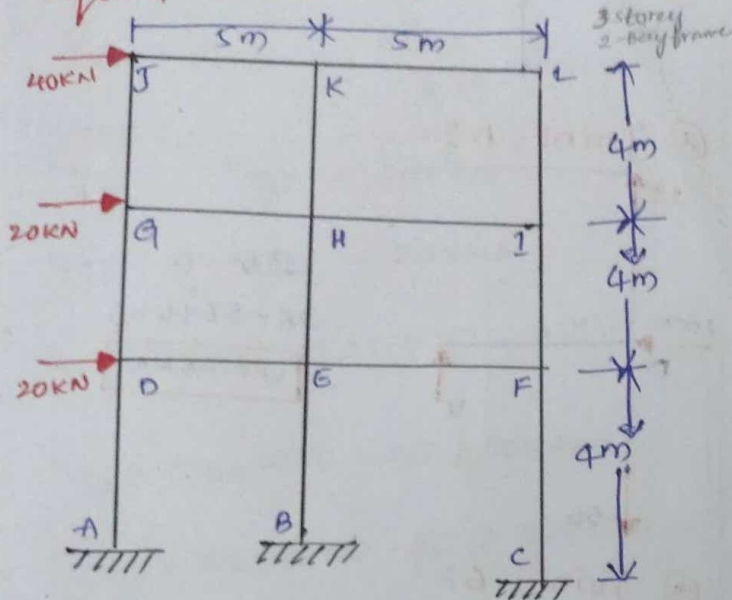 3 storey
2-bay frame
5m 5m
40KN J K L
4m
20KN G H I
4m
20KN D E F
4m
A B C